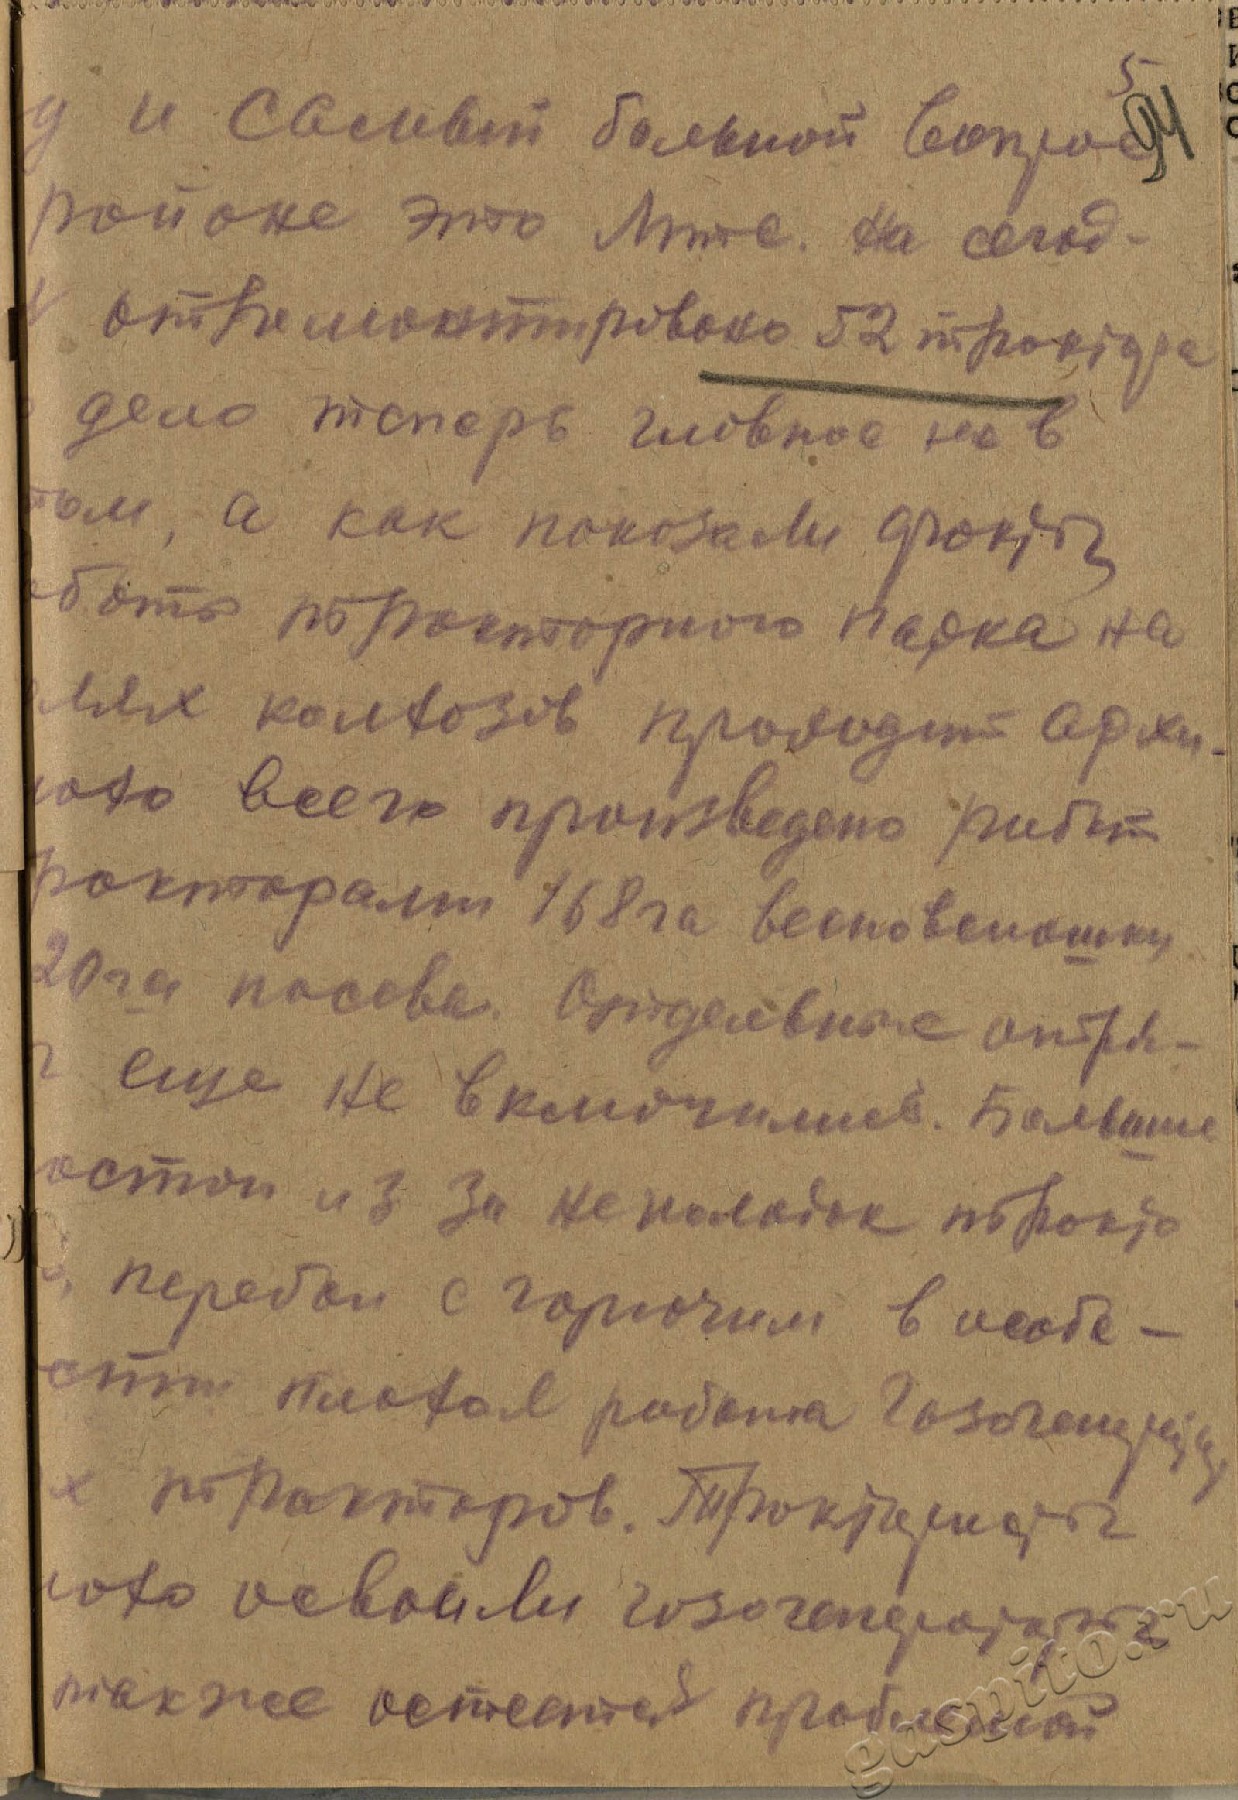 5
94
у и самый больной вопрос
районе это Мтс. На сегод-
отремонтировано 52 трактора
дело теперь главное не в
том, а как показали факты
аботы тракторного парка на
лях колхозов проходит архи-
лохо всего произведено работ
ракторами 168 га весновспашки
20 га посева. Отдельные отря-
еще не включились. Большие
остои из за неполадок тракто
, перебои с горючим в особе-
сти плохая работа газогенератор
х тракторов. Трактористы
лохо освоили газогенераторы
также остается проблемой
gaspito.ru